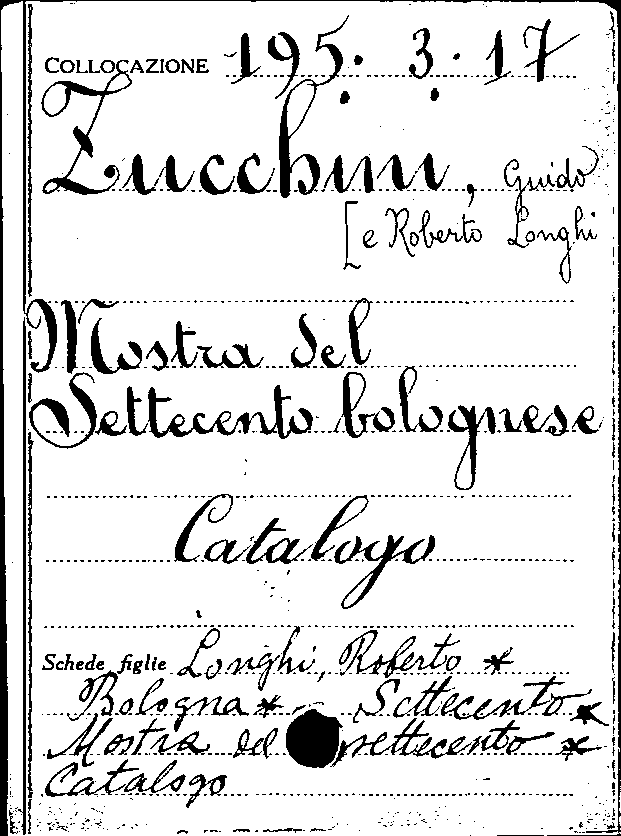 COLLOCAZIONE 195. 3. 17
Zucchini, Guido
[e Roberto Longhi
Mostra del
Settecento bolognese
Catalogo
Schede figlie Longhi, Roberto *
Bologna * - Settecento *
Mostra del settecento *
Catalogo